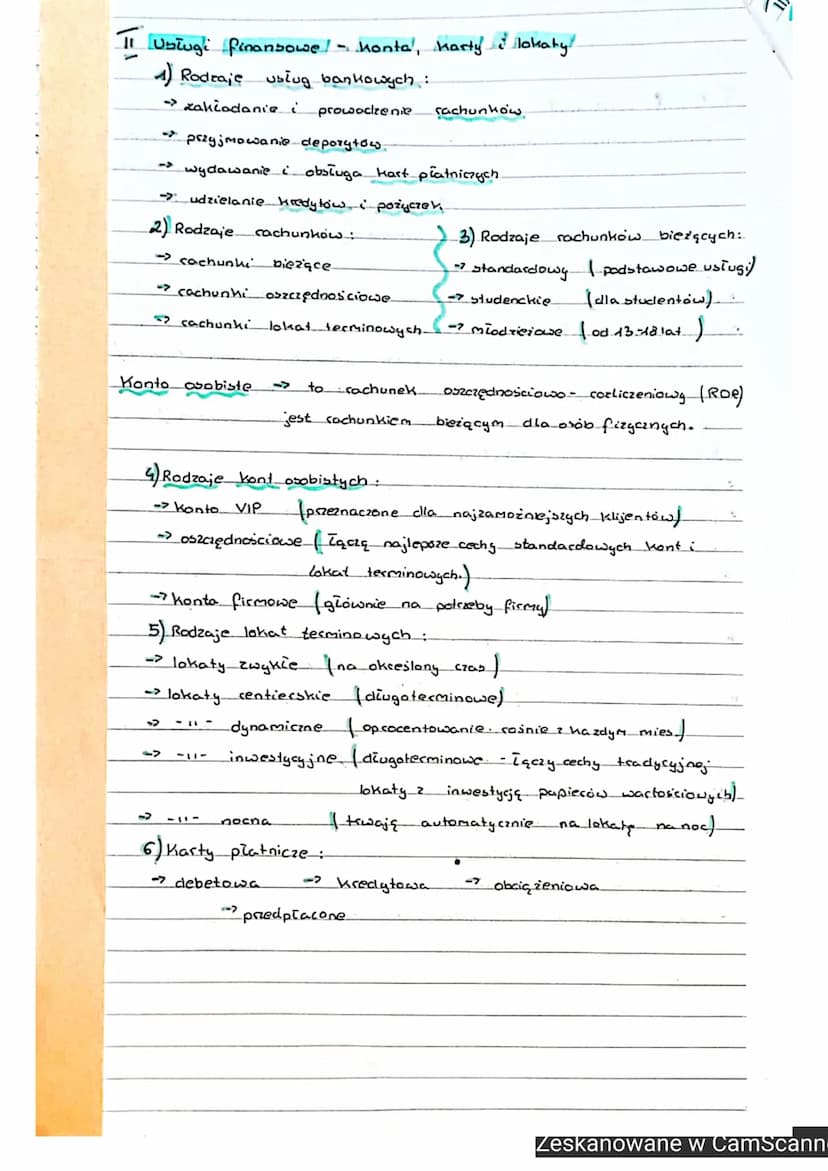 II Usługi finansowe - konta, karty i lokaty
1) Rodzaje usług bankowych:
-> zakładanie i prowadzenie rachunków
-> przyjmowanie depozytów
-> wydawanie i obsługa kart płatniczych
-> udzielanie kredytów i pożyczek
2) Rodzaje rachunków:
-> rachunki bieżące
-> rachunki oszczędnościowe
-> rachunki lokat terminowych
3) Rodzaje rachunków bieżących:
-> standardowy (podstawowe usługi)
-> studenckie (dla studentów)
-> młodzieżowe (od 13-18 lat)
Konto osobiste -> to rachunek oszczędnościowo - rozliczeniowy (ROR)
jest rachunkiem bieżącym dla osób fizycznych.
4) Rodzaje kont osobistych:
-> Konto VIP (przeznaczone dla najzamożniejszych klijentów)
-> oszczędnościowe (łączą najlepsze cechy standardowych kont i
lokat terminowych.)
-> Konta firmowe (głównie na potrzeby firmy)
5) Rodzaje lokat terminowych:
-> lokaty zwykłe (na określony czas)
-> lokaty rentierskie (długoterminowe)
-> -11- dynamiczne (oprocentowanie rośnie z każdym mies.)
-> -11- inwestycyjne (długoterminowe - łączy cechy tradycyjnej
lokaty z inwestycją papierów wartościowych)
-> -11- nocna (trwają automatycznie na lokatę na noc)
6) Karty płatnicze:
-> debetowa -> kredytowa -> obciążeniowa
-> przedpłacone
Zeskanowane w CamScann